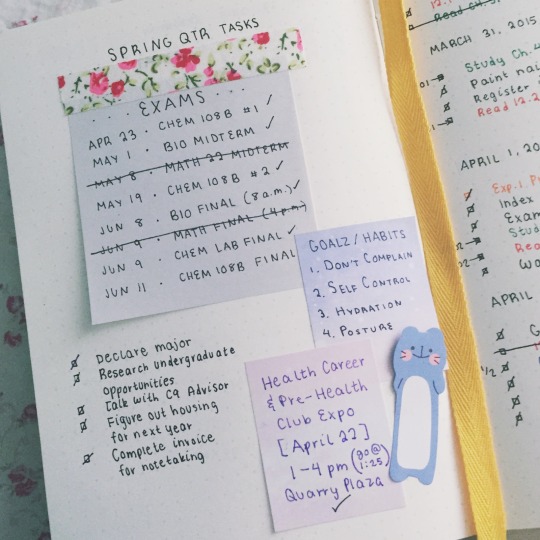 SPRING QTR TASKS
EXAMS
APR 23 · CHEM 108B #1 ✓
MAY 1 · BIO MIDTERM ✓
MAY 8 · MATH 22 MIDTERM
MAY 19 · CHEM 108B #2 ✓
JUN 8 · BIO FINAL (8 a.m.) ✓
JUN 9 · MATH FINAL (4 p.m.)
JUN 9 · CHEM LAB FINAL ✓
JUN 11 · CHEM 108B FINAL
GOALZ / HABITS
1. DON'T COMPLAIN
2. SELF CONTROL
3. HYDRATION
4. POSTURE
Declare major
Research undergraduate
opportunities
Talk with C9 Advisor
Figure out housing
for next year
Complete invoice
for notetaking
Health Career
& Pre-Health
Club Expo
[April 22]
1-4 pm (go @
1:25)
Quarry Plaza
✓
Read
MARCH 31, 2015
Study Ch.
Paint nai
Register
Read 12.2
APRIL 1, 20
Exp. 1 P
Index
Exam
Stud
Rea
Wo
APRIL